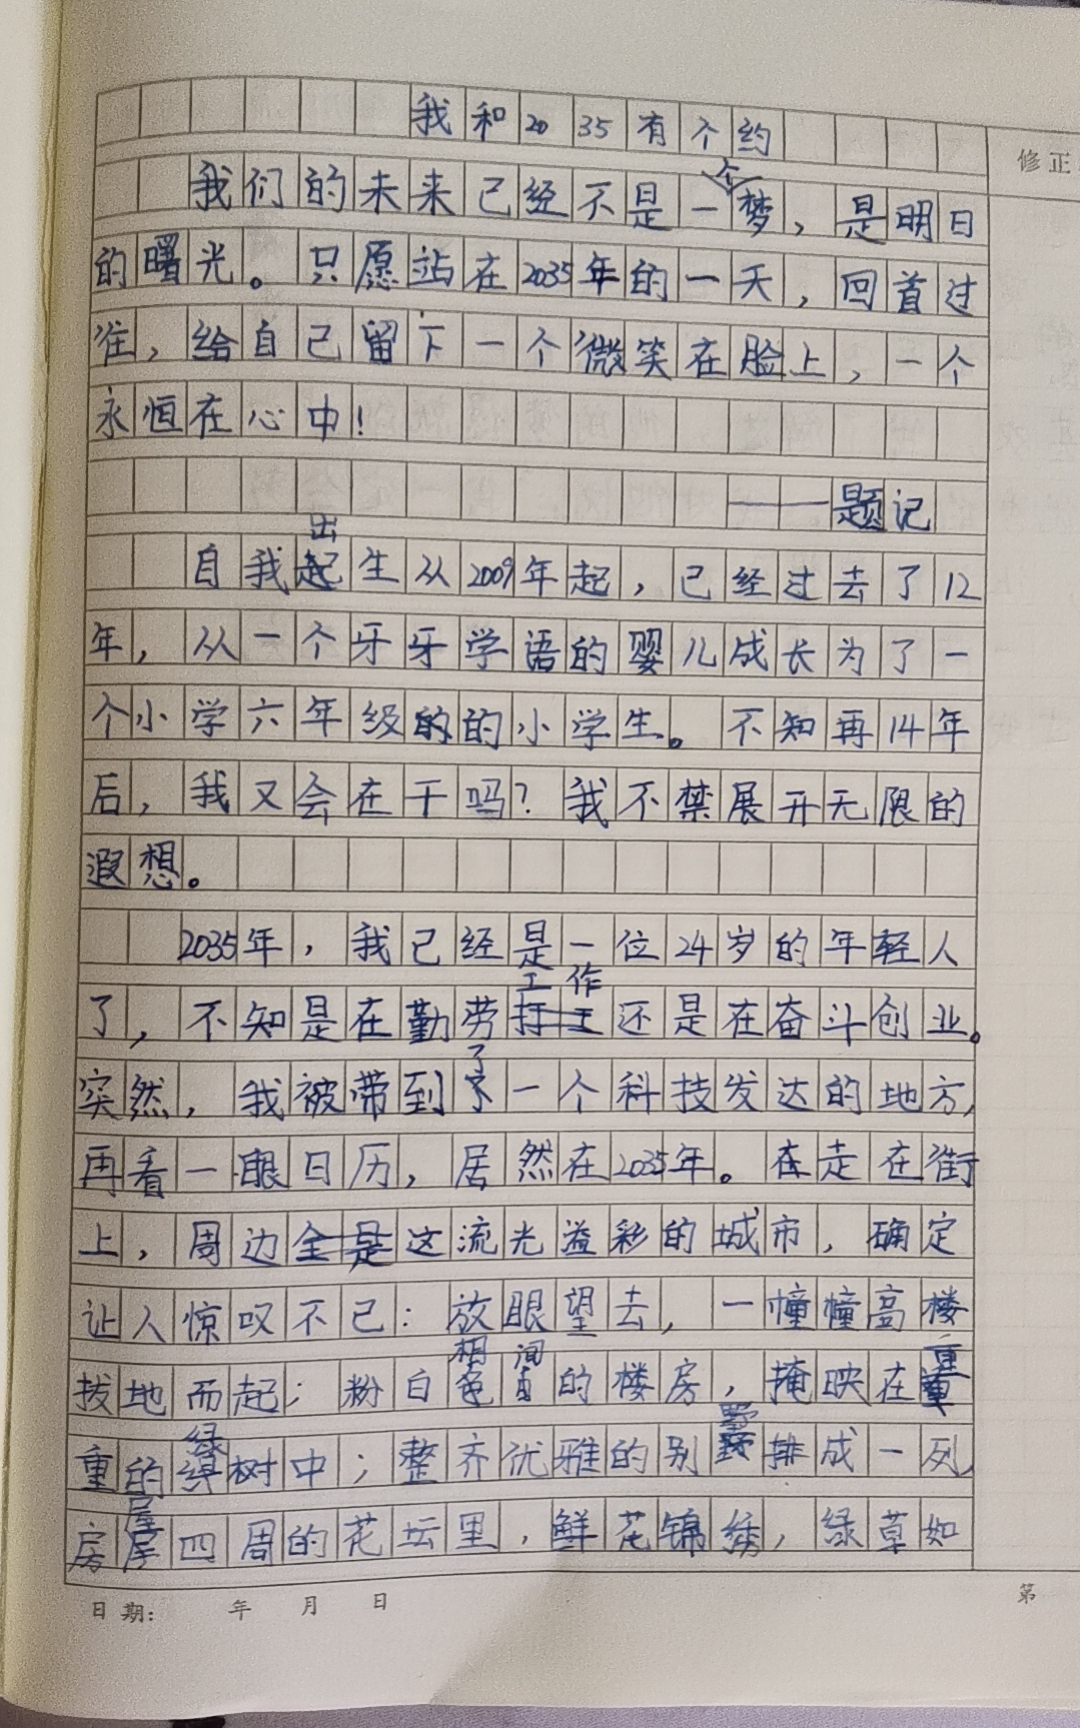 我和2035有个约
修正
我们的未来已经不是一个梦，是明日
的曙光。只愿站在2035年的一天，回首过
往，给自己留下一个微笑在脸上，一个
永恒在心中！
——题记
自我出生从2009年起，已经过去了12
年，从一个牙牙学语的婴儿成长为了一
个小学六年级的的小学生。不知再14年
后，我又会在干吗？我不禁展开无限的
遐想。
2035年，我已经是一位24岁的年轻人
了，不知是在勤劳工作还是在奋斗创业。
突然，我被带到了一个科技发达的地方，
再看一眼日历，居然在2035年。在走在街
上，周边这流光溢彩的城市，确定
让人惊叹不已：放眼望去，一幢幢高楼
拔地而起；粉白相间的楼房，掩映在重
重的绿树中；整齐优雅的别墅排成一列，
房屋四周的花坛里，鲜花锦绣，绿草如
日期： 年 月 日
第